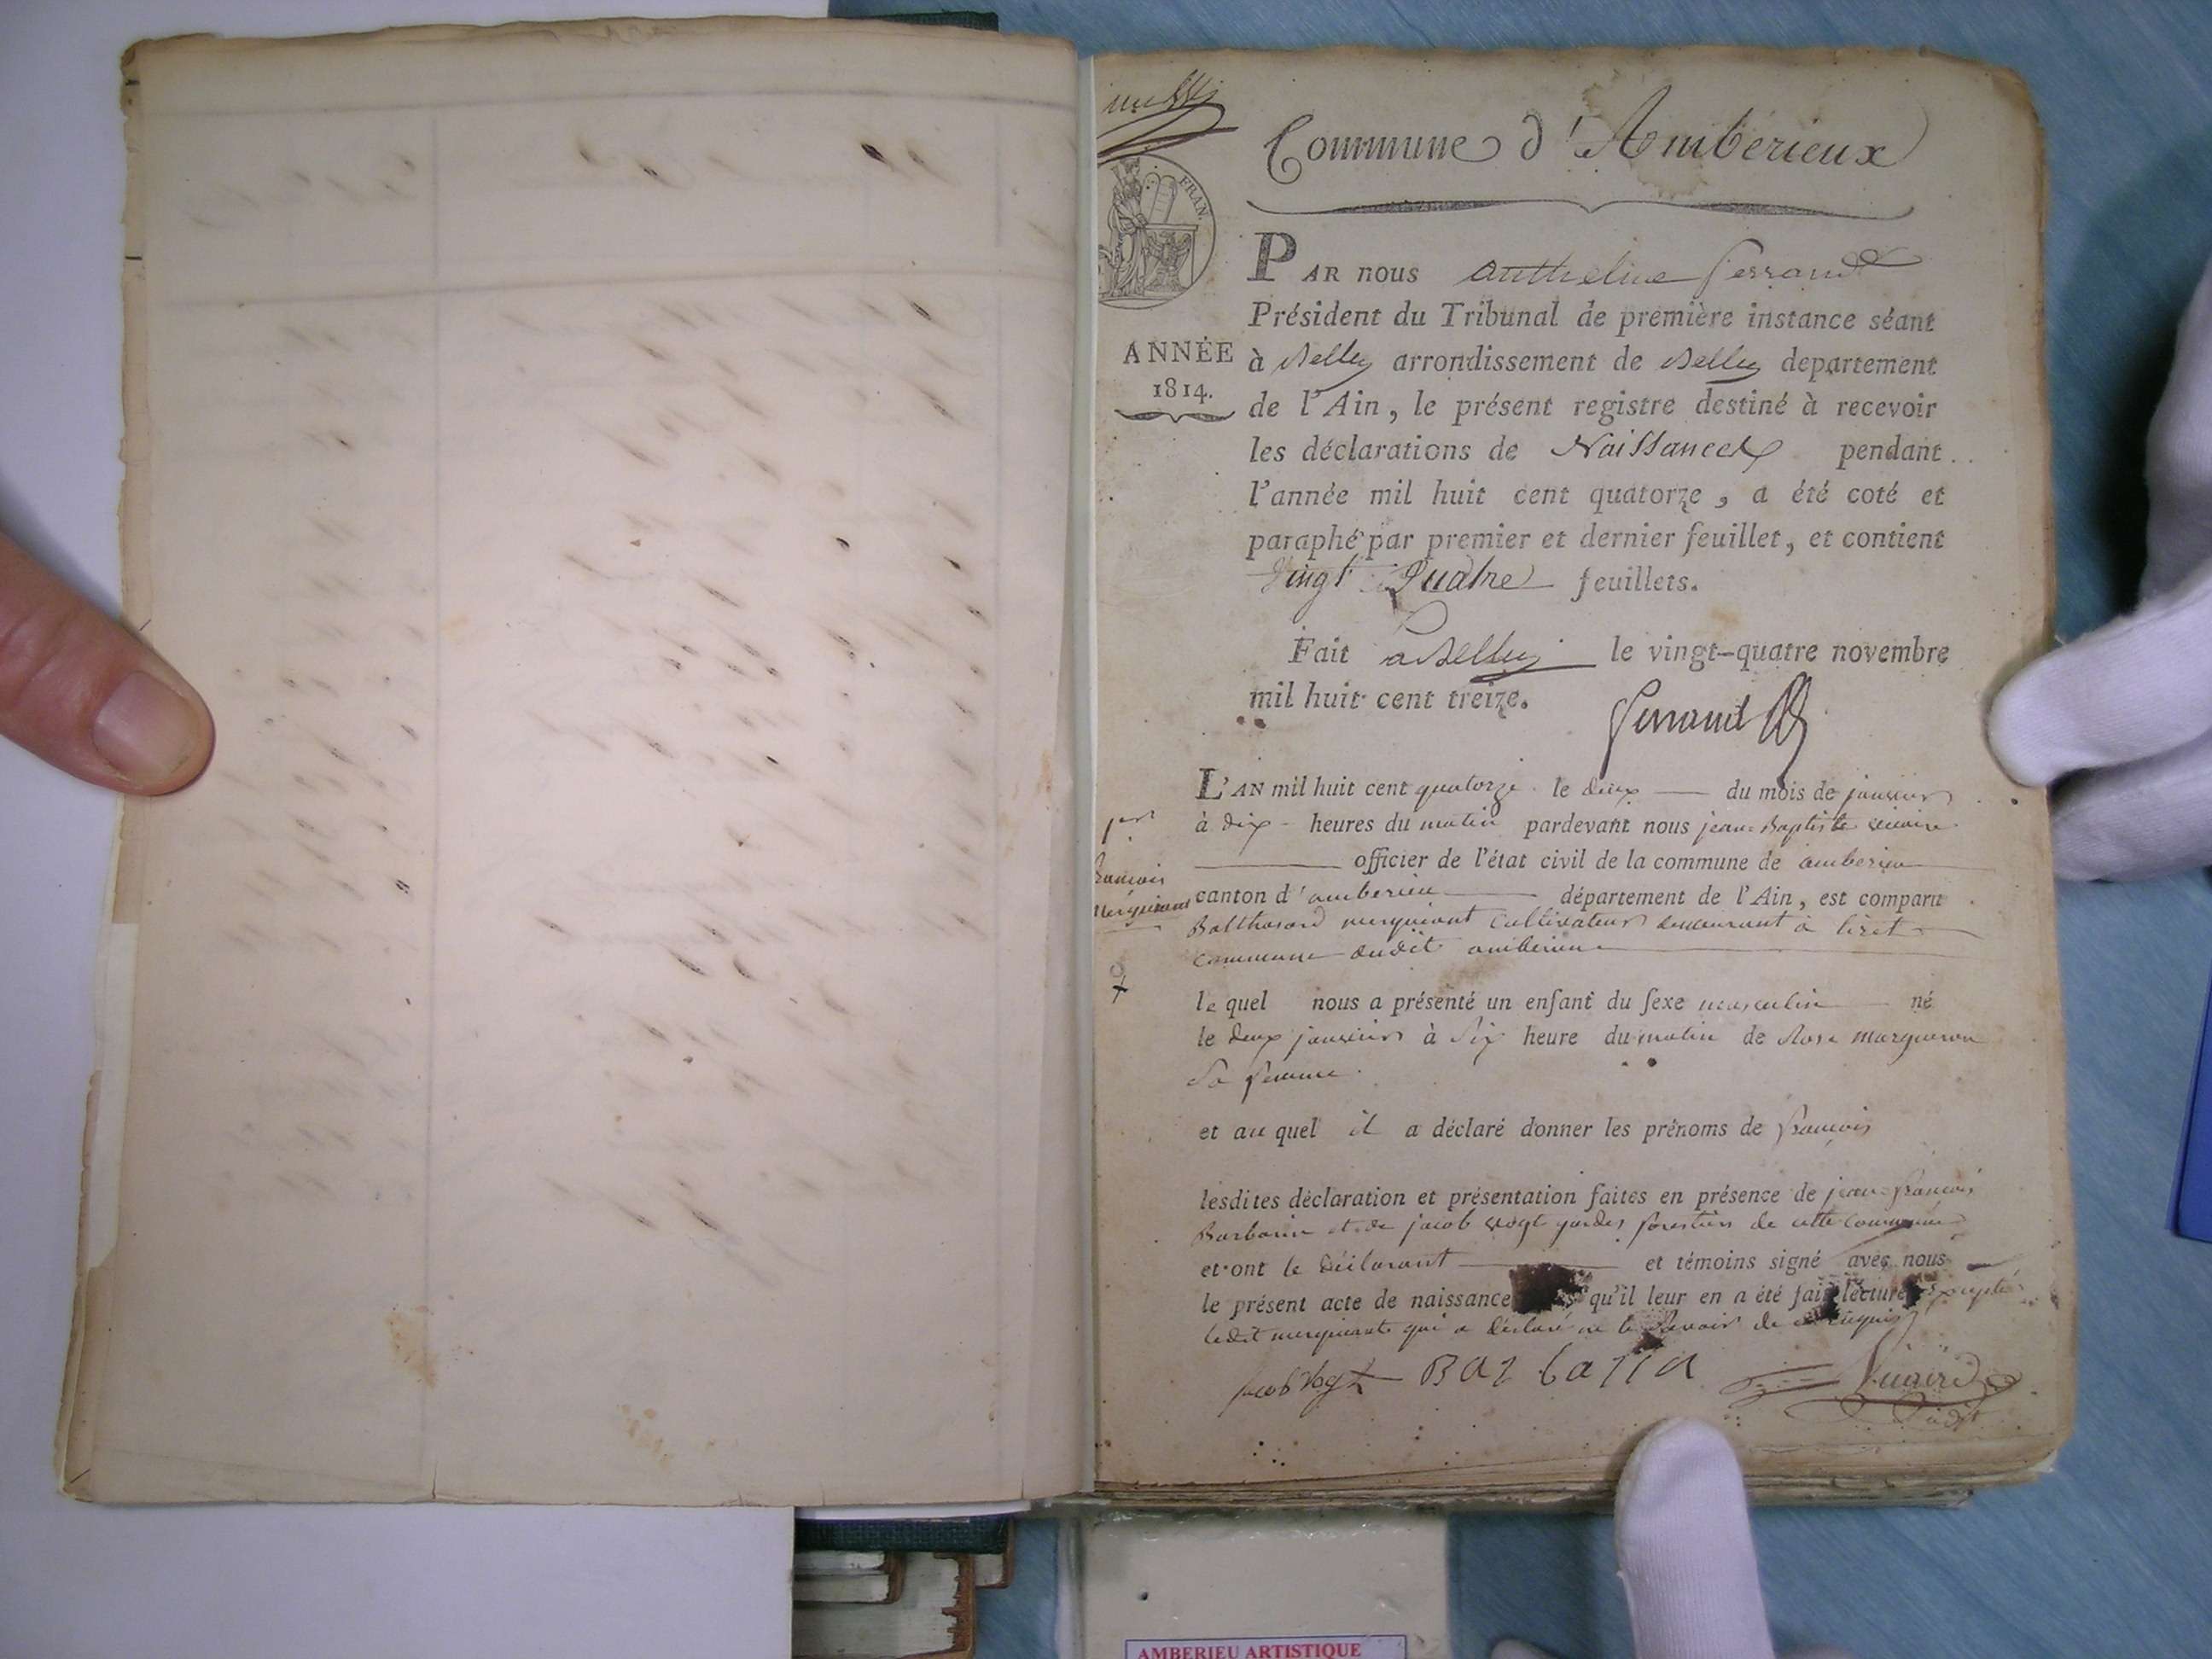 Commune d'Ambérieux
FRAN.
ANNÉE
1814.
PAR nous Anthelme Ferrand
Président du Tribunal de première instance séant
à Belley arrondissement de Belley departement
de l'Ain, le présent registre destiné à recevoir
les déclarations de Naissances pendant
l'année mil huit cent quatorze, a été coté et
paraphé par premier et dernier feuillet, et contient
Vingt Quatre feuillets.
Fait a Belley le vingt-quatre novembre
mil huit cent treize.
Ferrand
L'AN mil huit cent quatorze le deux du mois de janvier
à dix heures du matin pardevant nous jean Baptiste
officier de l'état civil de la commune de amberieu
canton d'amberieu département de l'Ain, est comparu
Balthasard cultivateur demeurant à
commune dudit amberieu
françois
le quel nous a présenté un enfant du sexe masculin né
le deux janvier à six heure du matin de Rose
Sa femme
et au quel il a déclaré donner les prénoms de françois
lesdites déclaration et présentation faites en présence de jean françois
Barbarin et de jacob vogt gardes forestiers de cette commune
et ont le déclarant et témoins signé avec nous
le présent acte de naissance qu'il leur en a été fait lecture excepté
ledit qui a déclaré ne le savoir de ce requis
jacob Vogt
AMBERIEU ARTISTIQUE